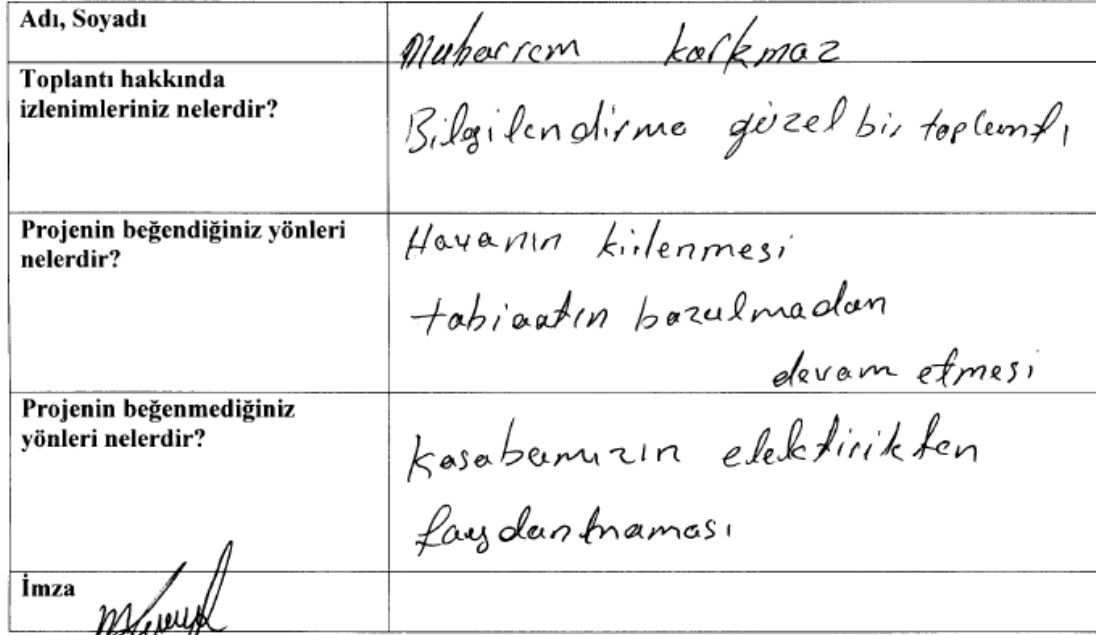 Adı, Soyadı
Muharrem korkmaz
Toplantı hakkında
izlenimleriniz nelerdir?
Bilgilendirme güzel bir toplantı
Projenin beğendiğiniz yönleri
nelerdir?
Havanın kirlenmesi
tabiaatın bozulmadan
devam etmesi
Projenin beğenmediğiniz
yönleri nelerdir?
kasabamızın elektirikten
faydanlnaması
İmza